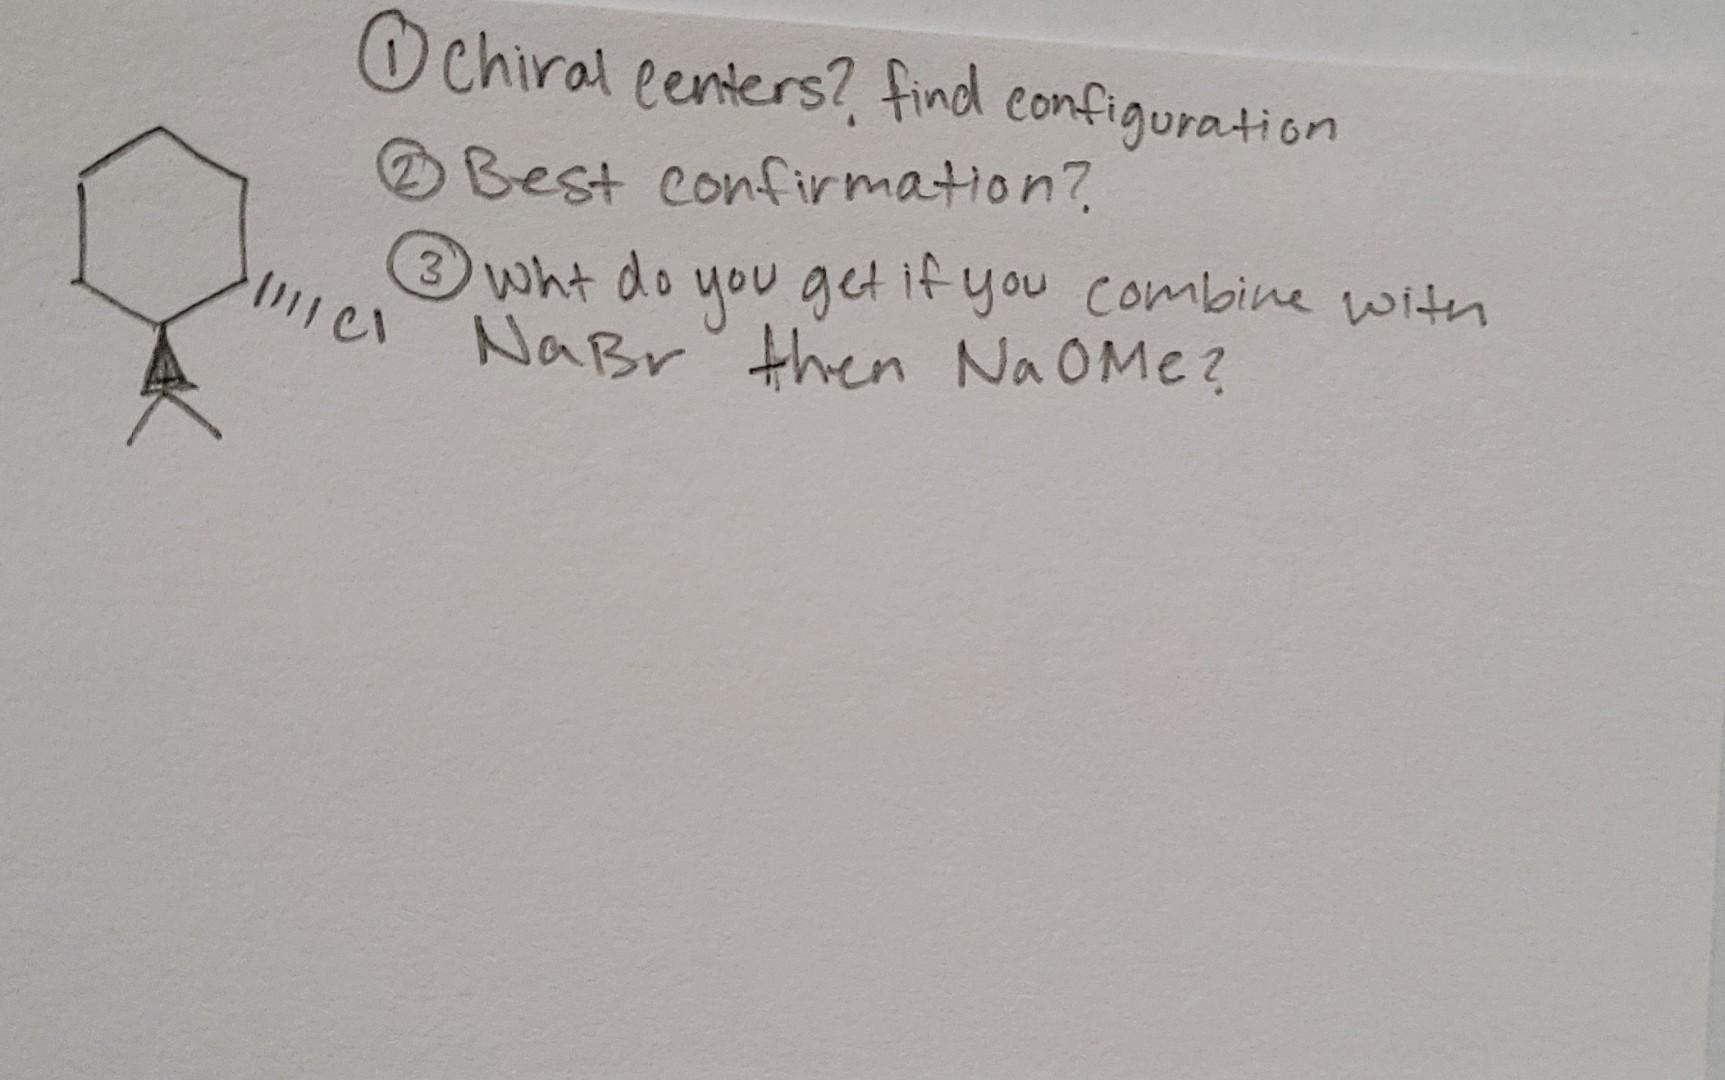 ① Chiral centers? find configuration
② Best confirmation?
③ Wht do you get if you combine with
NaBr then NaOMe?
Cl